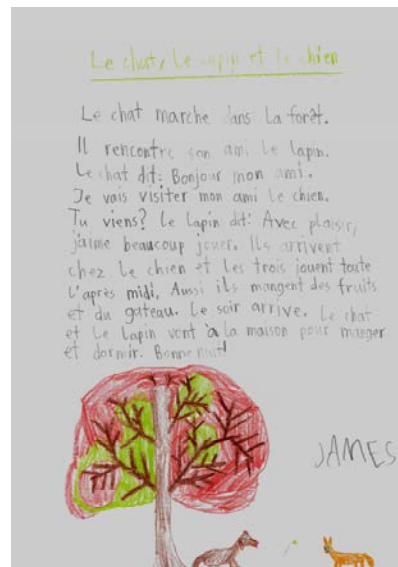 Le chat, Le lapin et le chien
Le chat marche dans la forêt.
Il rencontre son ami le lapin.
Le chat dit: Bonjour mon ami.
Je vais visiter mon ami le chien.
Tu viens? Le lapin dit: Avec plaisir,
j'aime beaucoup jouer. Ils arrivent
chez le chien et les trois jouent toute
l'après midi, Aussi ils mangent des fruits
et du gateau. Le soir arrive. Le chat
et le lapin vont à la maison pour manger
et dormir. Bonne nuit!
JAMES